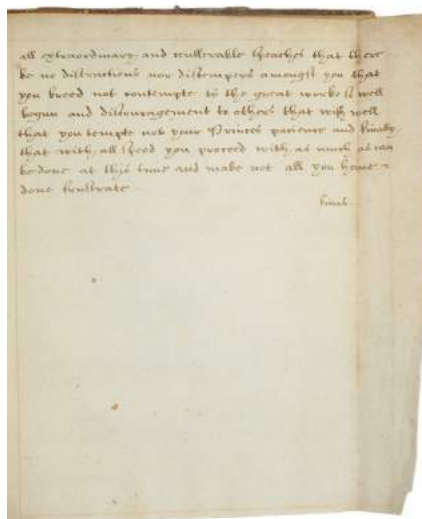 all extraordinary and reasonable speaches that there
be no distractions nor distempers amongst you that
you breed not contempte to the great worke so well
begun and discouragement to others that wish well
that you tempte not your Princes patience and finally,
that with all speed you proceed with as much as can
be done at this time and make not all you have
done frustrate
finis